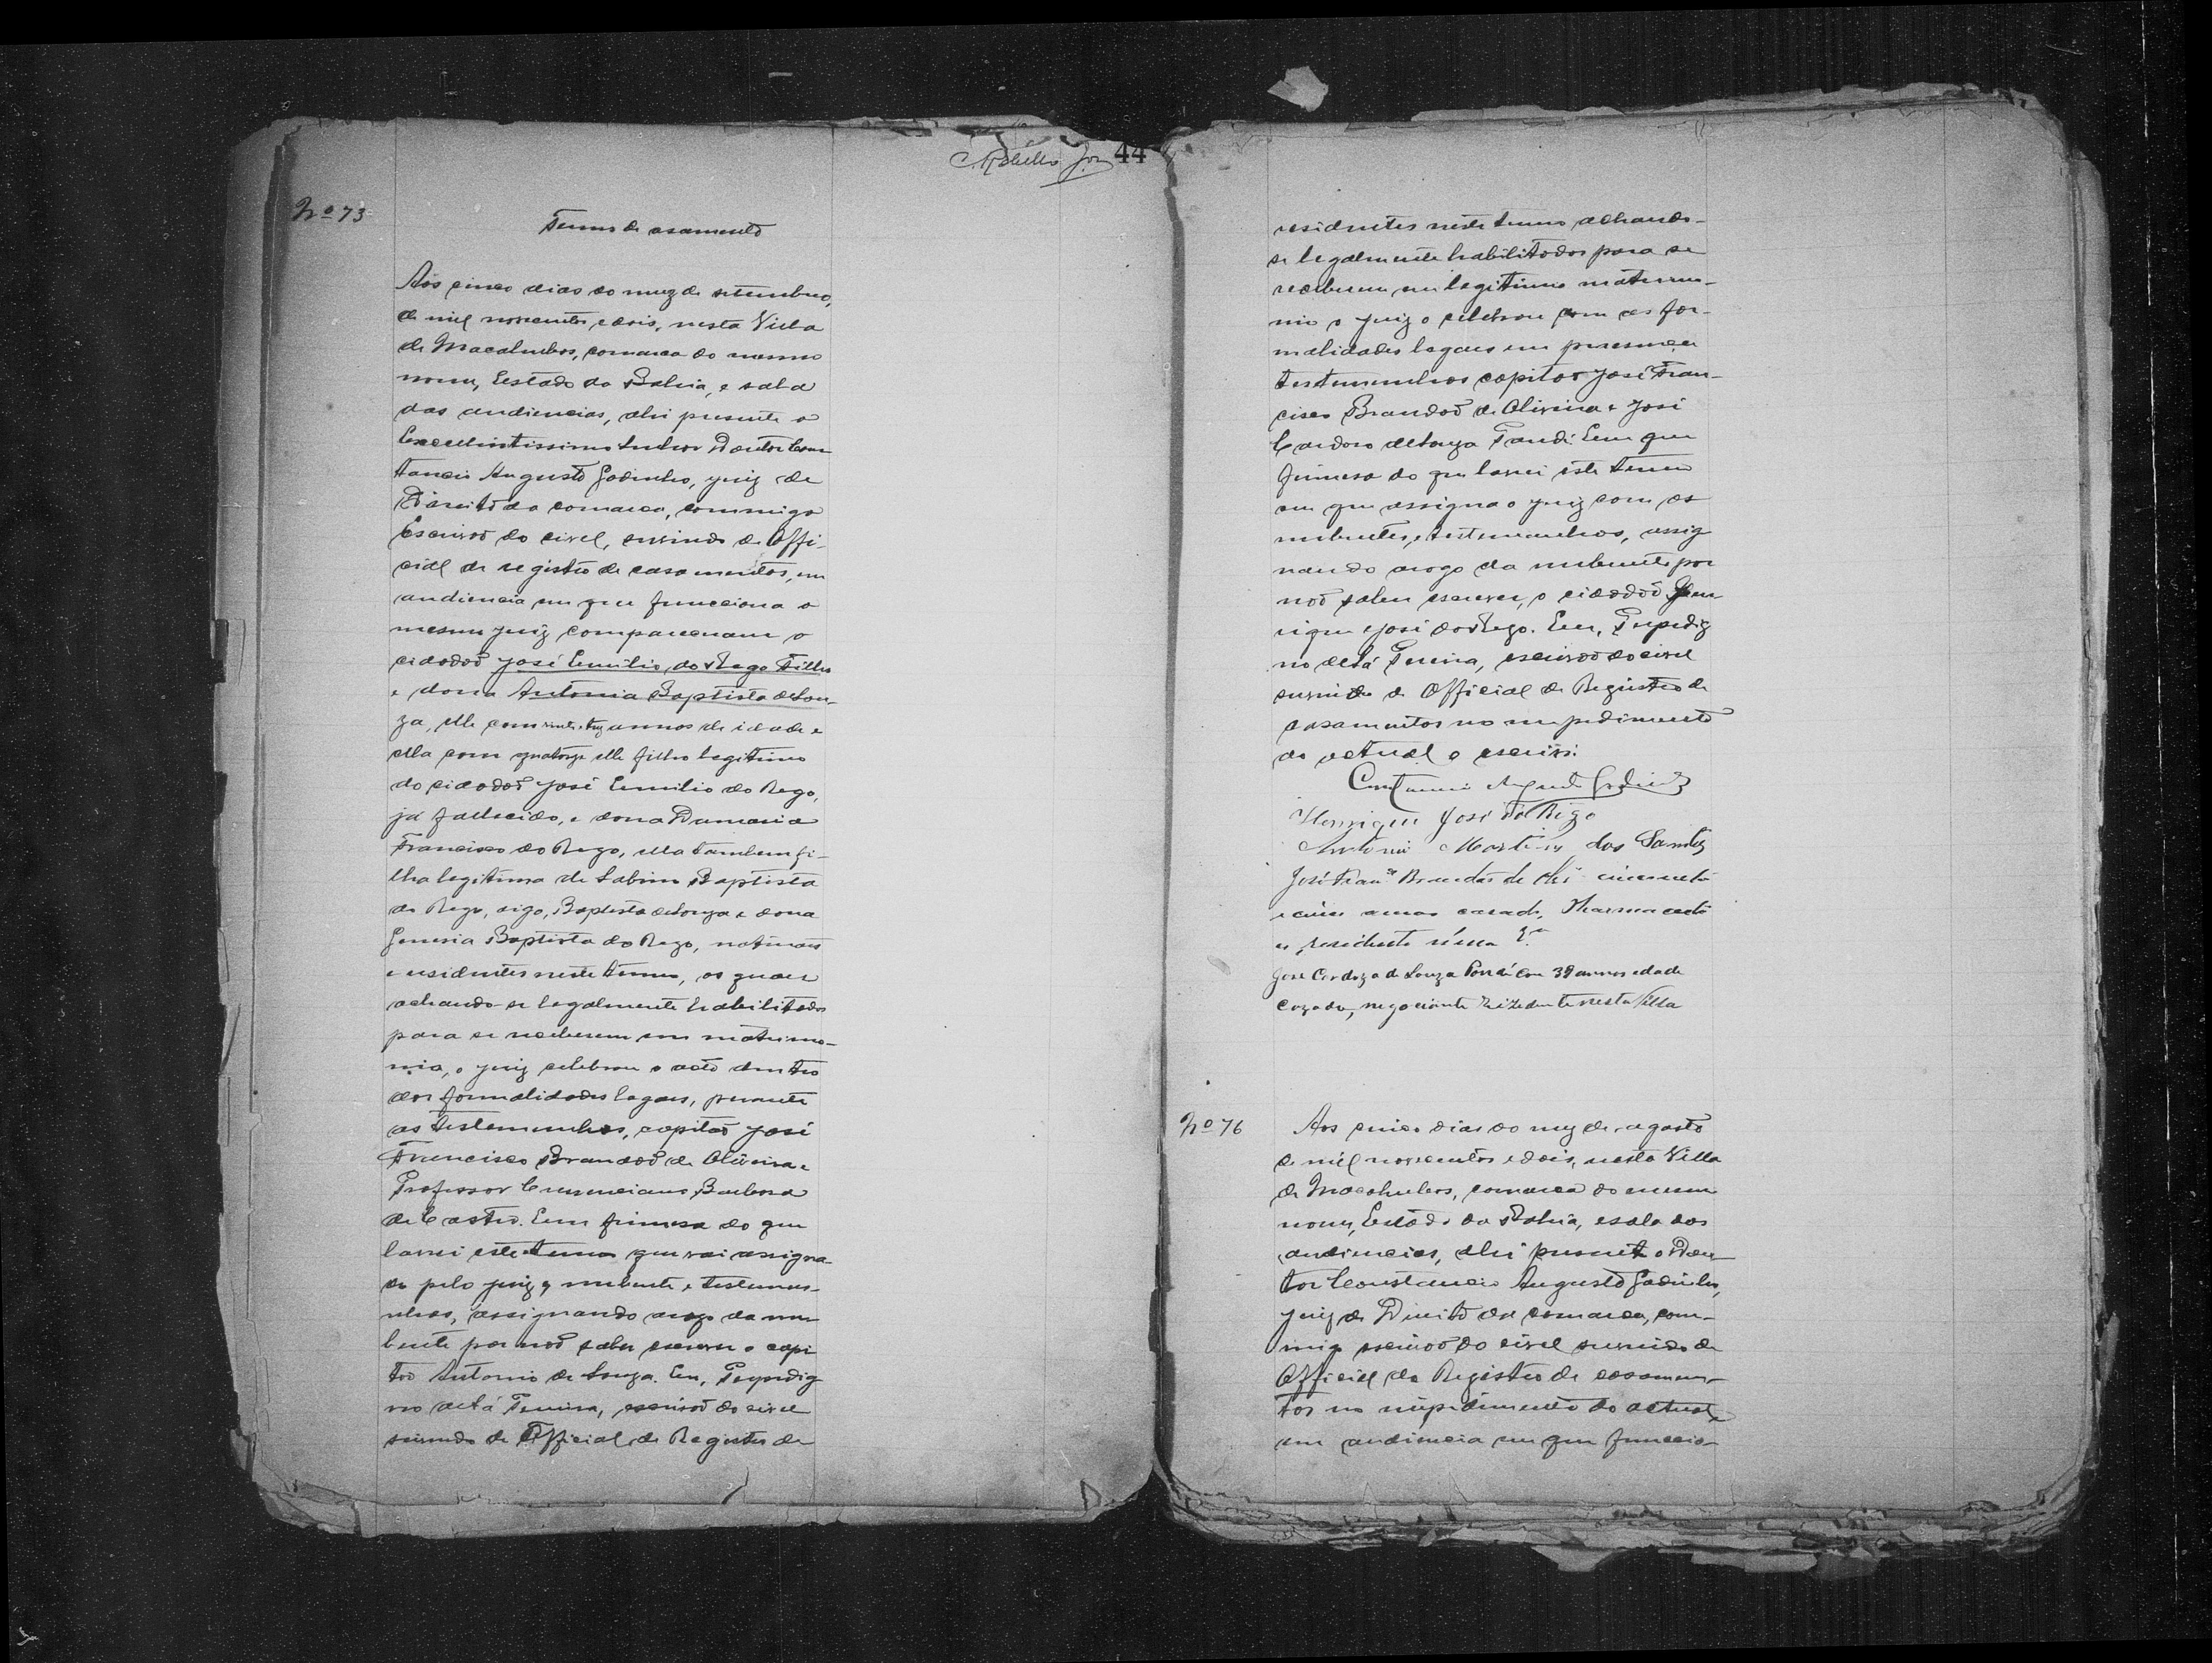 44
Nº 73
Termo de casamento
Aos cinco dias do mez de setembro,
de mil novecentos e dois, nesta Villa
de Macahubas, comarca do mesmo
nome, Estado da Bahia, e sala
das audiencias, ahi presente o
Excellentissimo Senhor Doutor Cons
tancio Augusto Godinho, juiz de
Direito da comarca, commigo
Escrivaõ do civel, servindo de Offi-
cial de registro de casamentos, em
audiencia em que funcciona o
mesmo juiz compareceram o
cidadaõ José Emilio do Rego Filho
e dona Antonia Baptista de Sou-
za, elle com vinte e tres annos de idade e
ella com quatorze elle filho legitimo
do cidadaõ José Emilio do Rego,
ja fallecido, e dona Damasia
Francisca do Rego, ella tambem fi-
lha legitima de Sabino Baptista
do Rego, digo, Baptista de Souza e dona
Generia Baptista do Rego, naturaes
e residentes neste termo, os quaes
achando-se legalmente habilitados
para se receberem em matrimo-
nio, o juiz celebrou o acto dentro
das formalidades legaes, perante
as testemunhas, capitaõ José
Francisco Brandaõ de Oliveira e
Professor Crescenciano Barbosa
de Castro. Em firmesa do que
lavrei este termo que vai assigna-
do pelo juiz, nubente e testemu-
nhas, assignando arogo da nu-
bente por naõ saber escrever o capi
taõ Antonio de Souza. Eu,
no de Sá Pereira, escrivaõ do civel
servindo de Official de Registro de
residentes neste termo achando-
se legalmente habilitados para se
receberem em legitimo matrimo-
nio o juiz o celebrou com as for-
malidades legaes em presença
testemunhas capitaõ José Fran-
cisco Brandaõ de Oliveira e José
Cardoso de Souza Pondé Em que
firmesa do que lavrei este termo
em que assigna o juiz com os
nubentes, e testemunhas, assig
nando arogo da nubente por
naõ saber escrever, o cidadaõ Hen
rique José do Rego. Eu,
no de Sá Pereira, escrivaõ do civel
servindo de Official de Registro de
casamentos no impedimento
do actual o escrivi.
Constancio Augusto Godinho
Henrique José do Rego
Antonio Martins dos Santos
José Franco Brandão de Olivª cincoenta
e cinco annos casado, Pharmaceuti
co, residente nesta Vª
José Cardozo de Souza Pondé com 39 annos edade
cazado, negociante rezidente nesta Villa
Nº 76
Aos cinco dias do mez de agosto
de mil novecentos e dois, nesta Villa
de Macahubas, comarca do mesmo
nome, Estado da Bahia, e sala das
audiencias, ahi presente o Dou
tor Constancio Augusto Godinho,
juiz de Direito da comarca, com-
migo escrivaõ do civel servindo de
Official do Registro de casamen-
tos no impedimento do actual e
em audiencia em que funccio-